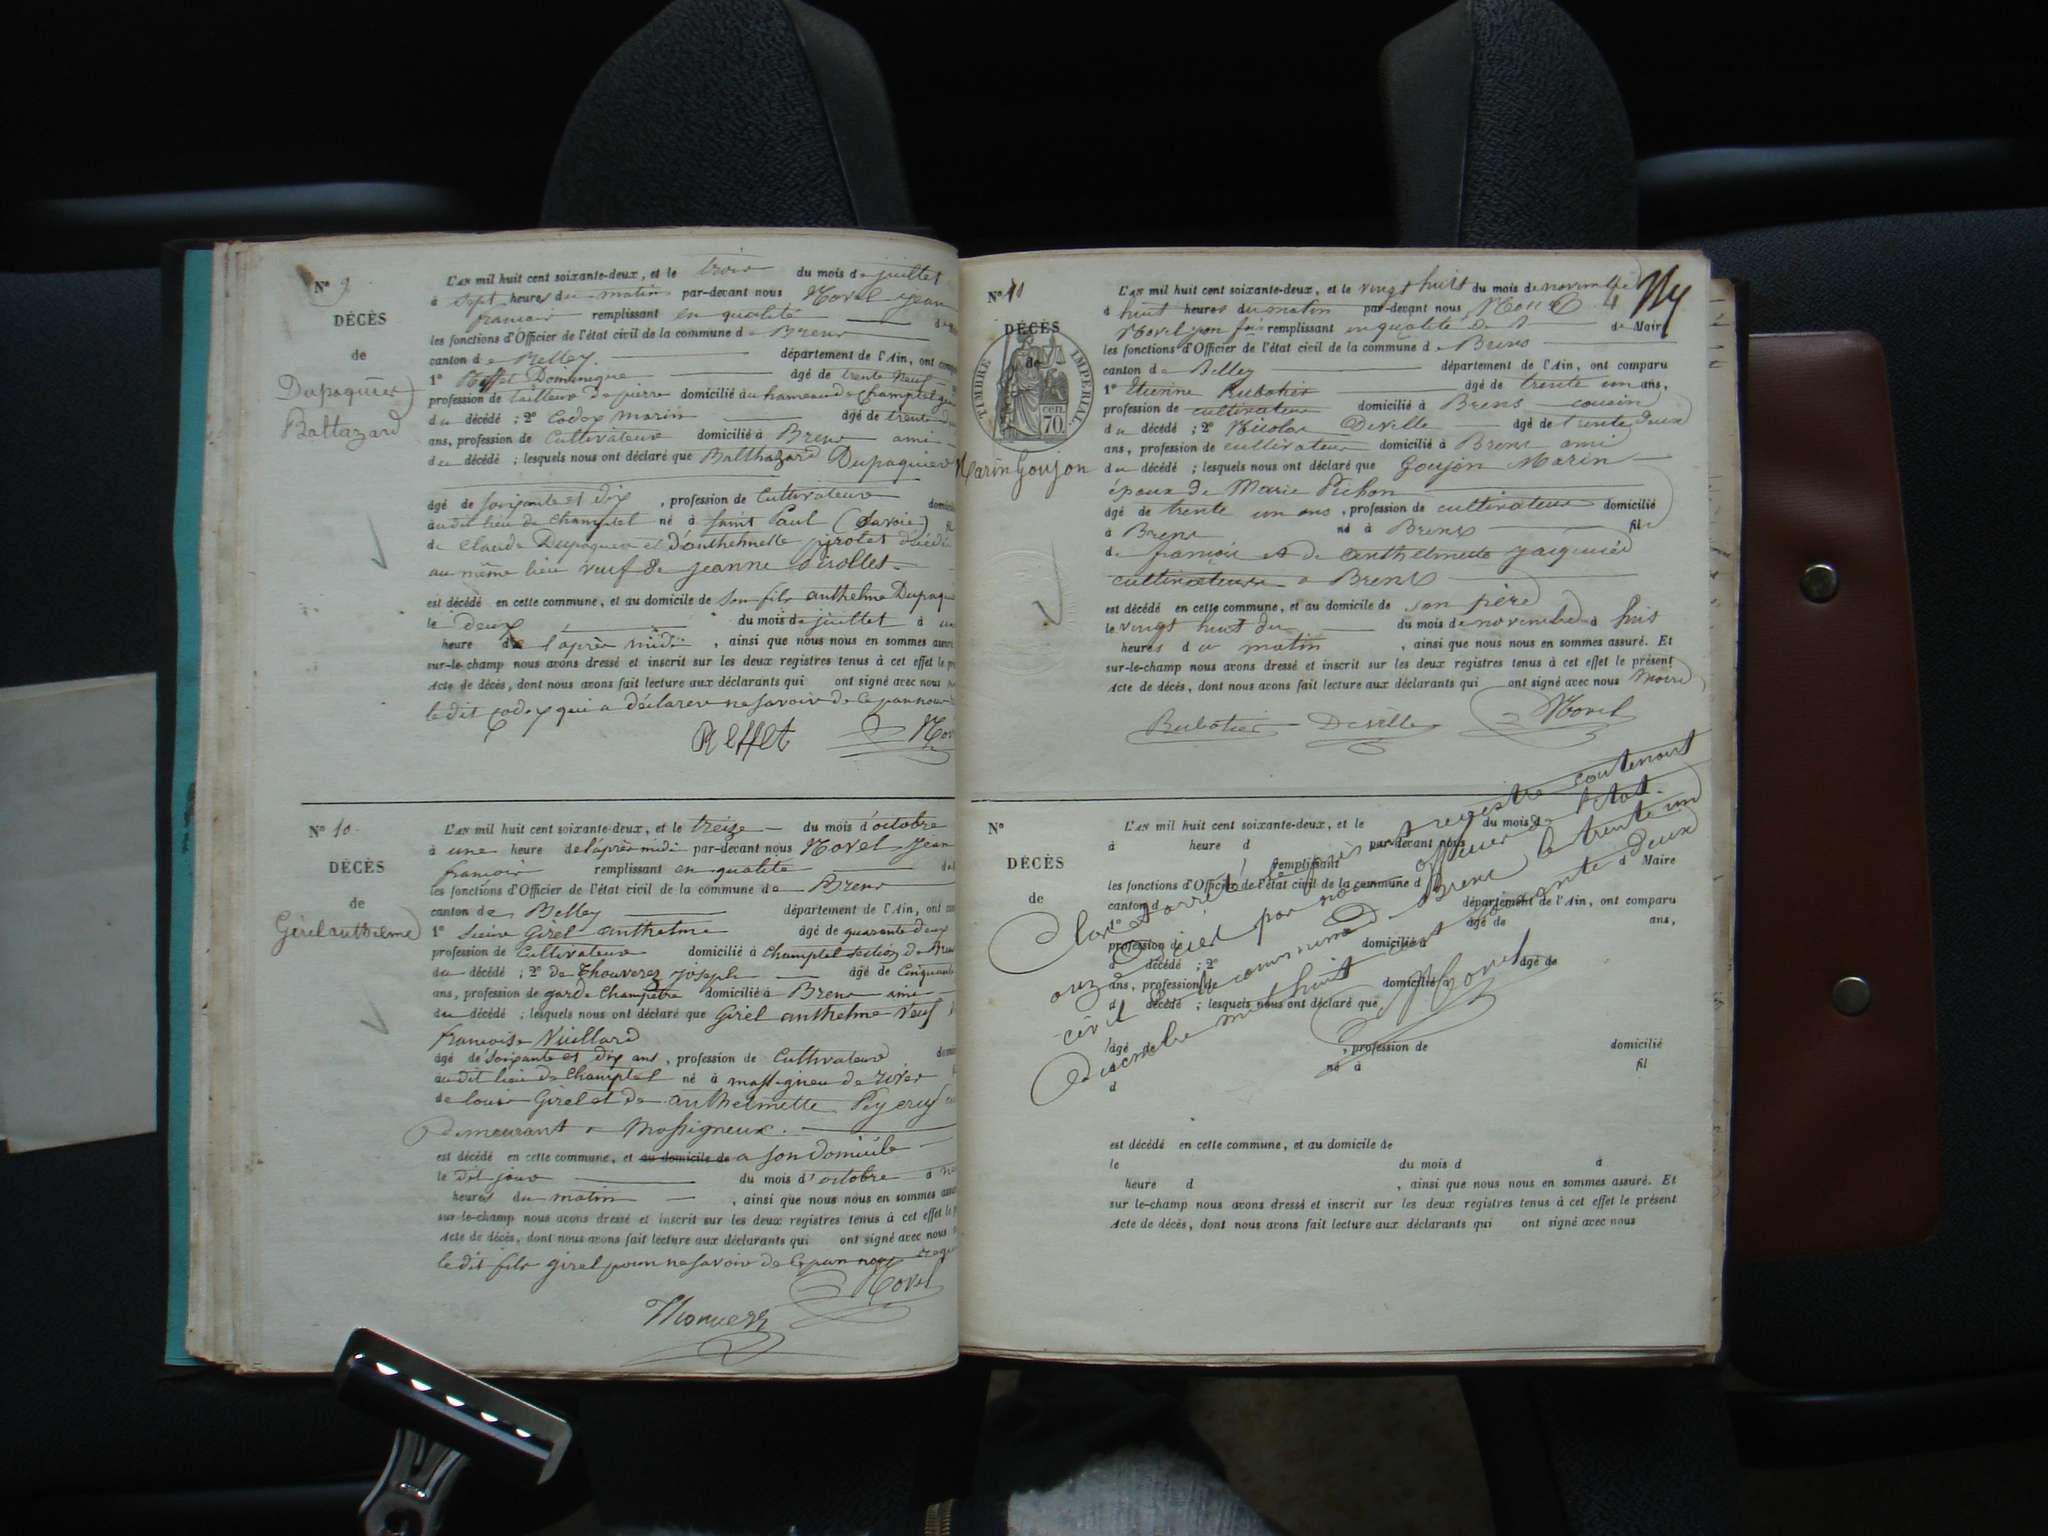 N° 9
DÉCÈS
de
Dupaquier
Baltazard
L'AN mil huit cent soixante-deux, et le trois du mois de juillet
à sept heures du matin par-devant nous Hovel jean
francois remplissant en qualité
les fonctions d'Officier de l'état civil de la commune de Brens
canton de Belley département de l'Ain, ont comparu
1° Reffet Dominique âgé de trente neuf
profession de tailleur de pierre domicilié au hameau de Champtel
du décédé ; 2° Codex Marin âgé de trente
ans, profession de Cultivateur domicilié à Brens ami
du décédé ; lesquels nous ont déclaré que Balthazard Dupaquier
âgé de soixante et dix , profession de Cultivateur
audit lieu de Champtel né à Saint Paul (Savoie) fil
de Claude Dupaquier et d'anthelmette pirolet
au même lieu veuf de jeanne
est décédé en cette commune, et au domicile de son fils anthelme
le Deux du mois de juillet à
heure de l'après midi , ainsi que nous nous en sommes
sur-le-champ nous avons dressé et inscrit sur les deux registres tenus à cet effet le
Acte de décès, dont nous avons fait lecture aux déclarants qui ont signé avec nous
le dit Codex qui a déclarer ne savoir de ce
Reffet
N° 10
DÉCÈS
de
Girel anthelme
L'AN mil huit cent soixante-deux, et le treize du mois d'octobre
à une heure de l'après midi par-devant nous Hovel Jean
francois remplissant en qualité
les fonctions d'Officier de l'état civil de la commune de Brens
canton de Belley département de l'Ain, ont
1° Girel anthelme âgé de quarante deux
profession de Cultivateur domicilié à Champtel section de
du décédé ; 2° de Thouverez joseph âgé de Cinquante
ans, profession de garde Champêtre domicilié à Brens ami
du décédé ; lesquels nous ont déclaré que Girel anthelme Veuf
francoise Vuillard
âgé de soixante et dix ans , profession de Cultivateur
audit lieu de Champtel né à massigneu de rives
de louis Girel et de anthelmette
demeurant a Massigneux.
est décédé en cette commune, et au domicile de a son domicile
le dit jour du mois d'octobre à
heures du matin , ainsi que nous nous en sommes
sur-le-champ nous avons dressé et inscrit sur les deux registres tenus à cet effet le
Acte de décès, dont nous avons fait lecture aux déclarants qui ont signé avec nous
le dit fils girel pour ne savoir de
Hovel
Thouverez
N° 11
DÉCÈS
de
TIMBRE IMPERIAL
70 cen.
Marin Goujon
L'AN mil huit cent soixante-deux, et le vingt huit du mois de novembre
à huit heures du matin par-devant nous
Hovel jean fois remplissant en qualité de Maire
les fonctions d'Officier de l'état civil de la commune de Brens
canton de Belley département de l'Ain, ont comparu
1° Etienne Rubatier âgé de trente un ans,
profession de cultivateur domicilié à Brens cousin
du décédé ; 2° Nicolas Deville âgé de trente deux
ans, profession de cultivateur domicilié à Brens ami
du décédé ; lesquels nous ont déclaré que Goujon Marin
époux de Marie Pichon
âgé de trente un ans , profession de cultivateur domicilié
à Brens né à Brens fil
de francois et de anthelmette jacquier
cultivateurs a Brens
est décédé en cette commune, et au domicile de son père
le vingt huit du du mois de novembre à huit
heures du matin , ainsi que nous nous en sommes assuré. Et
sur-le-champ nous avons dressé et inscrit sur les deux registres tenus à cet effet le présent
Acte de décès, dont nous avons fait lecture aux déclarants qui ont signé avec nous Maire
Rubatier Deville Hovel
N°
DÉCÈS
de
L'AN mil huit cent soixante-deux, et le du mois d
à heure d par-devant nous
remplissant d Maire
les fonctions d'Officier de l'état civil de la commune d
canton d département de l'Ain, ont comparu
1° âgé de ans,
profession de domicilié à
d décédé ; 2° âgé de
ans, profession de domicilié à
d décédé ; lesquels nous ont déclaré que
âgé de , profession de domicilié
né à fil
d
est décédé en cette commune, et au domicile de
le du mois d à
heure d , ainsi que nous nous en sommes assuré. Et
sur le-champ nous avons dressé et inscrit sur les deux registres tenus à cet effet le présent
Acte de décès, dont nous avons fait lecture aux déclarants qui ont signé avec nous
Clos et arrêté le présent registre contenant
onze par nous officier de l'état
civil de la commune de Brens le trente un
décembre mil huit cent soixante deux
Hovel